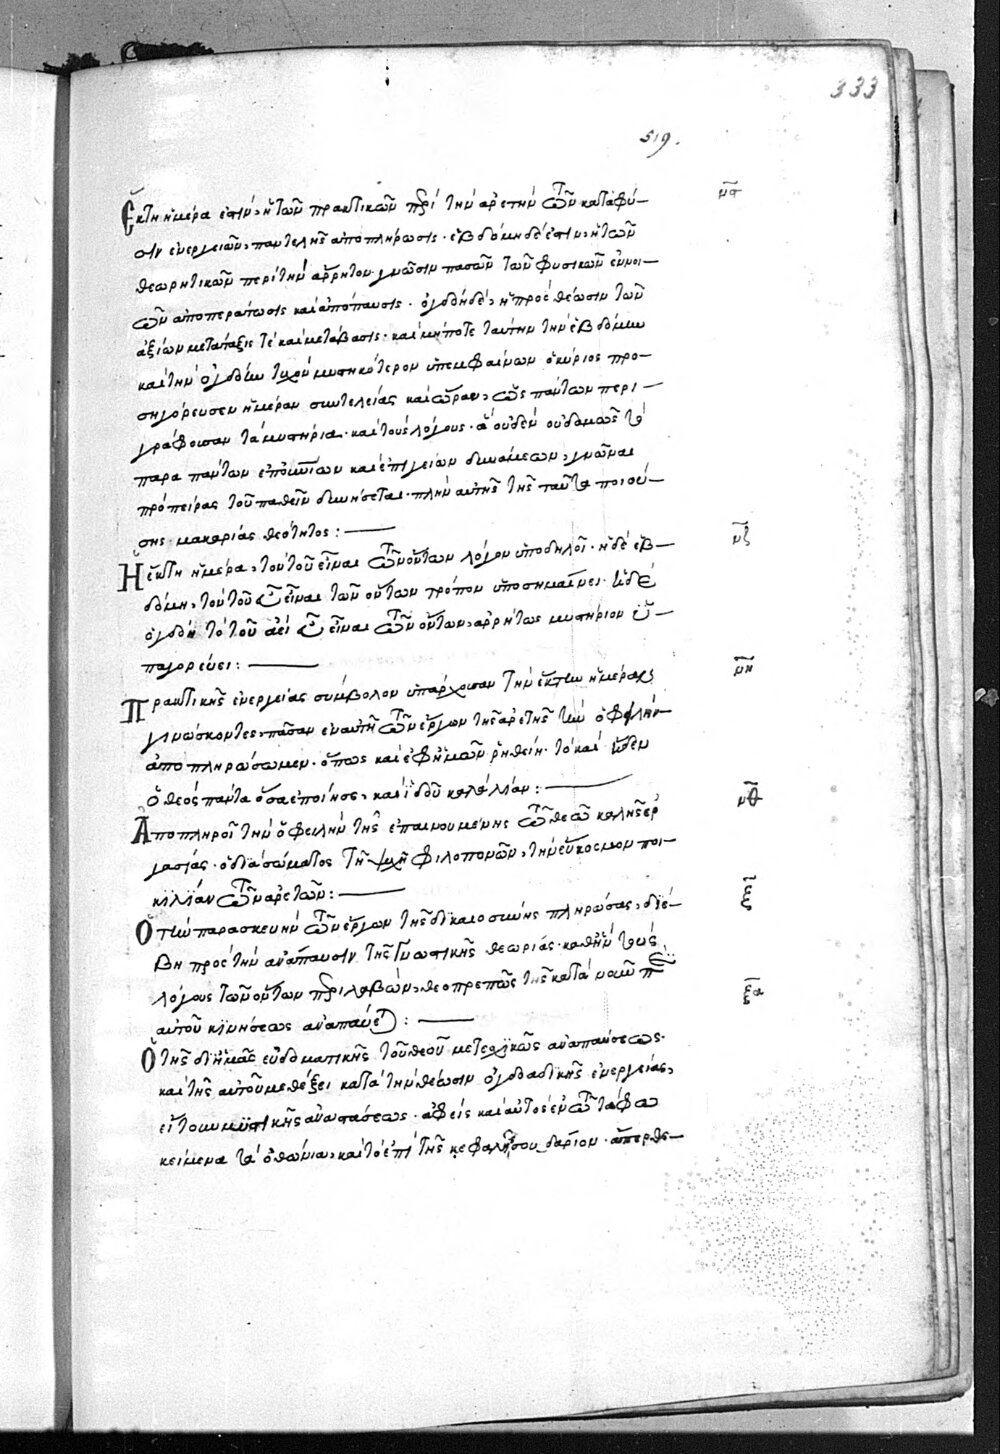 333
519.
Ἕκτη ἡμέρα ἐστίν, ἡ τῶν πρακτικῶν περὶ τὴν ἀρετὴν τῶν κατὰ φύ- νϛ
σιν ἐνεργειῶν, παντελὴς ἀποπλήρωσις. ἑβδόμη δέ ἐστιν, ἡ τῶν
θεωρητικῶν περὶ τὴν ἄρρητον γνῶσιν πασῶν τῶν φυσικῶν ἐννοι-
ῶν ἀποπεράτωσις καὶ ἀπόπαυσις. ὀγδόη δέ, ἡ πρὸς θέωσιν τῶν
ἀξίων μετάταξίς τε καὶ μετάβασις. καὶ μήποτε ταύτην τὴν ἑβδόμην
καὶ τὴν ὀγδόην τυχὸν μυστικώτερον ὑπεμφαίνων ὁ κύριος προ-
σηγόρευσεν ἡμέραν συντελείας καὶ ὥραν, ὡς πάντων περι-
γράφουσαν τὰ μυστήρια. καὶ τοὺς λόγους. ἃ οὐδὲν οὐδαμῶς τὸ
παρα πάντων ἐπουρανίων καὶ ἐπιγείων δυνάμεων, γνῶναι
πρὸ πείρας τοῦ παθεῖν δυνήσεται. πλὴν αὐτῆς τῆς ταῦτα ποιού-
σης μακαρίας θεότητος:
Ἡ ἕκτη ἡμέρα, τὸν τοῦ εἶναι τῶν ὄντων λόγον ὑποδηλοῖ. ἡ δὲ ἑβ- νζ
δόμη, τὸν τοῦ εὖ εἶναι τῶν ὄντων τρόπον ὑποσημαίνει. ἡ δὲ
ὀγδόη τὸ τοῦ ἀεὶ εὖ εἶναι τῶν ὄντων, ἀρρήτως μυστήριον ὑ-
παγορεύει:
Πρακτικῆς ἐνεργείας σύμβολον ὑπάρχουσαν τὴν ἕκτην ἡμέραν νη
γινώσκοντες, πᾶσαν ἐν αὐτῇ τῶν ἔργων τῆς ἀρετῆς τὴν ὀφειλὴν
ἀποπληρώσωμεν. ὅπως καὶ ἐφ' ἡμῶν ῥηθείη. τὸ καὶ εἶδεν
ὁ θεὸς πάντα ὅσα ἐποίησε, καὶ ἰδοὺ καλὰ λίαν:
Ἀποπληροῖ τὴν ὀφειλὴν τῆς ἐπαινουμένης τῷ θεῷ καλῆς ἐρ- νθ
γασίας. ὁ διὰ σώματος τῇ ψυχῇ φιλοπονῶν, τὴν εὔκοσμον ποι-
κιλίαν τῶν ἀρετῶν:
Ὁ τὴν παρασκευὴν τῶν ἔργων τῆς δικαιοσύνης πληρώσας, διέ- ξ
βη πρὸς τὴν ἀνάπαυσιν τῆς γνωστικῆς θεωρίας. καθ' ἣν τοὺς
λόγους τῶν ὄντων περιλαβών, θεοπρεπῶς τῆς κατὰ νοῦν περὶ
αὐτοῦ κινήσεως ἀναπαύεται:
Ὁ τῆς δι' ἡμᾶς εὐδοματικῆς τοῦ θεοῦ μετεσχηκὼς ἀναπαύσεως. ξα
καὶ τῆς αὐτοῦ μεθέξει κατὰ τὴν θέωσιν ὀγδοαδικῆς ἐνεργείας,
εἴτουν μυστικῆς ἀναστάσεως. ἀφεὶς καὶ αὐτὸς ἐν τῷ τάφῳ
κείμενα τὰ ὀθόνια, καὶ τὸ ἐπὶ τῆς κεφαλῆς σουδάριον. ἅπερ θε-